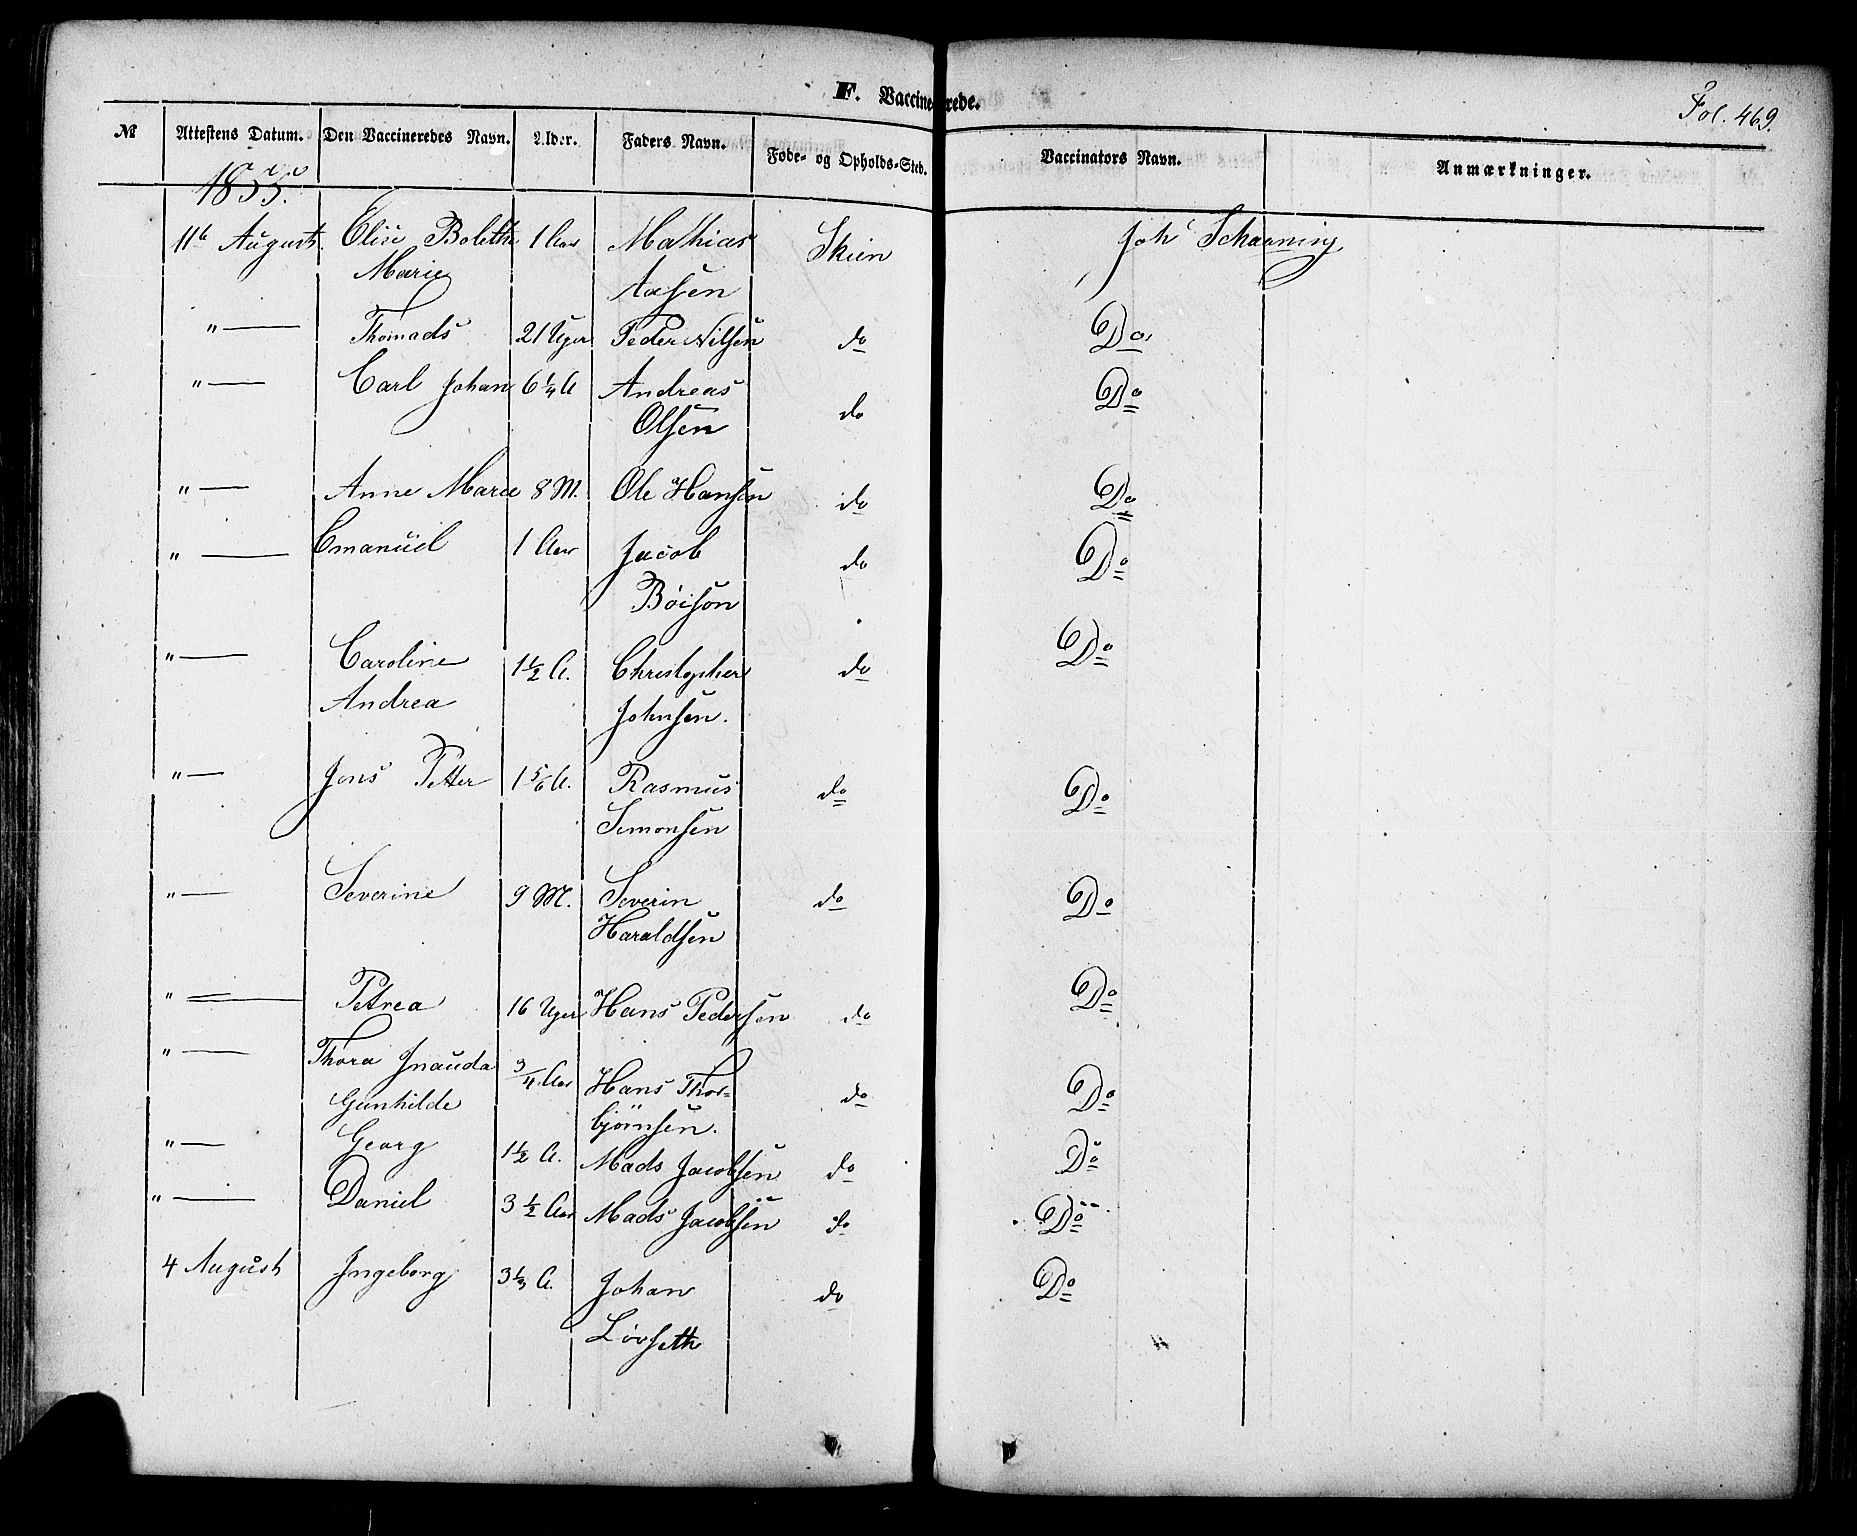 F. Vaccinerede.
Fol. 469.
№ Attestens Datum. Den Vaccineredes Navn. Alder. Faders Navn. Føde- og Opholds-Sted. Vaccinators Navn. Anmærkninger.
1855.
11te August. Elise Bolethe 1 Aar Mathias Skien Joh Schanning
Marie Aasen
" — Thomads 21 Uger Peder Nilsen do Do
" — Carl Johan 6 1/4 A Andreas do Do
Olsen
" — Anne Marie 8 M. Ole Hansen do Do
" — Emanuel 1 Aar Jacob do Do
Böison
" — Caroline 1 1/2 A. Christopher do Do
Andrea Johnsen.
" — Jens Petter 1 5/6 A. Rasmus do Do
Simonsen
" — Severine 9 M. Severin do Do
Haraldsen
" — Petrea 16 Uger Hans Pedersen do Do
" — Thora 3/4 Aar Hans Thor- do Do
Gunhilde björnsen.
" — Georg 1 1/2 A. Mads Jacobsen do Do
" — Daniel 3 1/2 Aar Mads Jacobsen do Do
4 August Ingeborg 3 1/3 A. Johan do Do
Lövseth